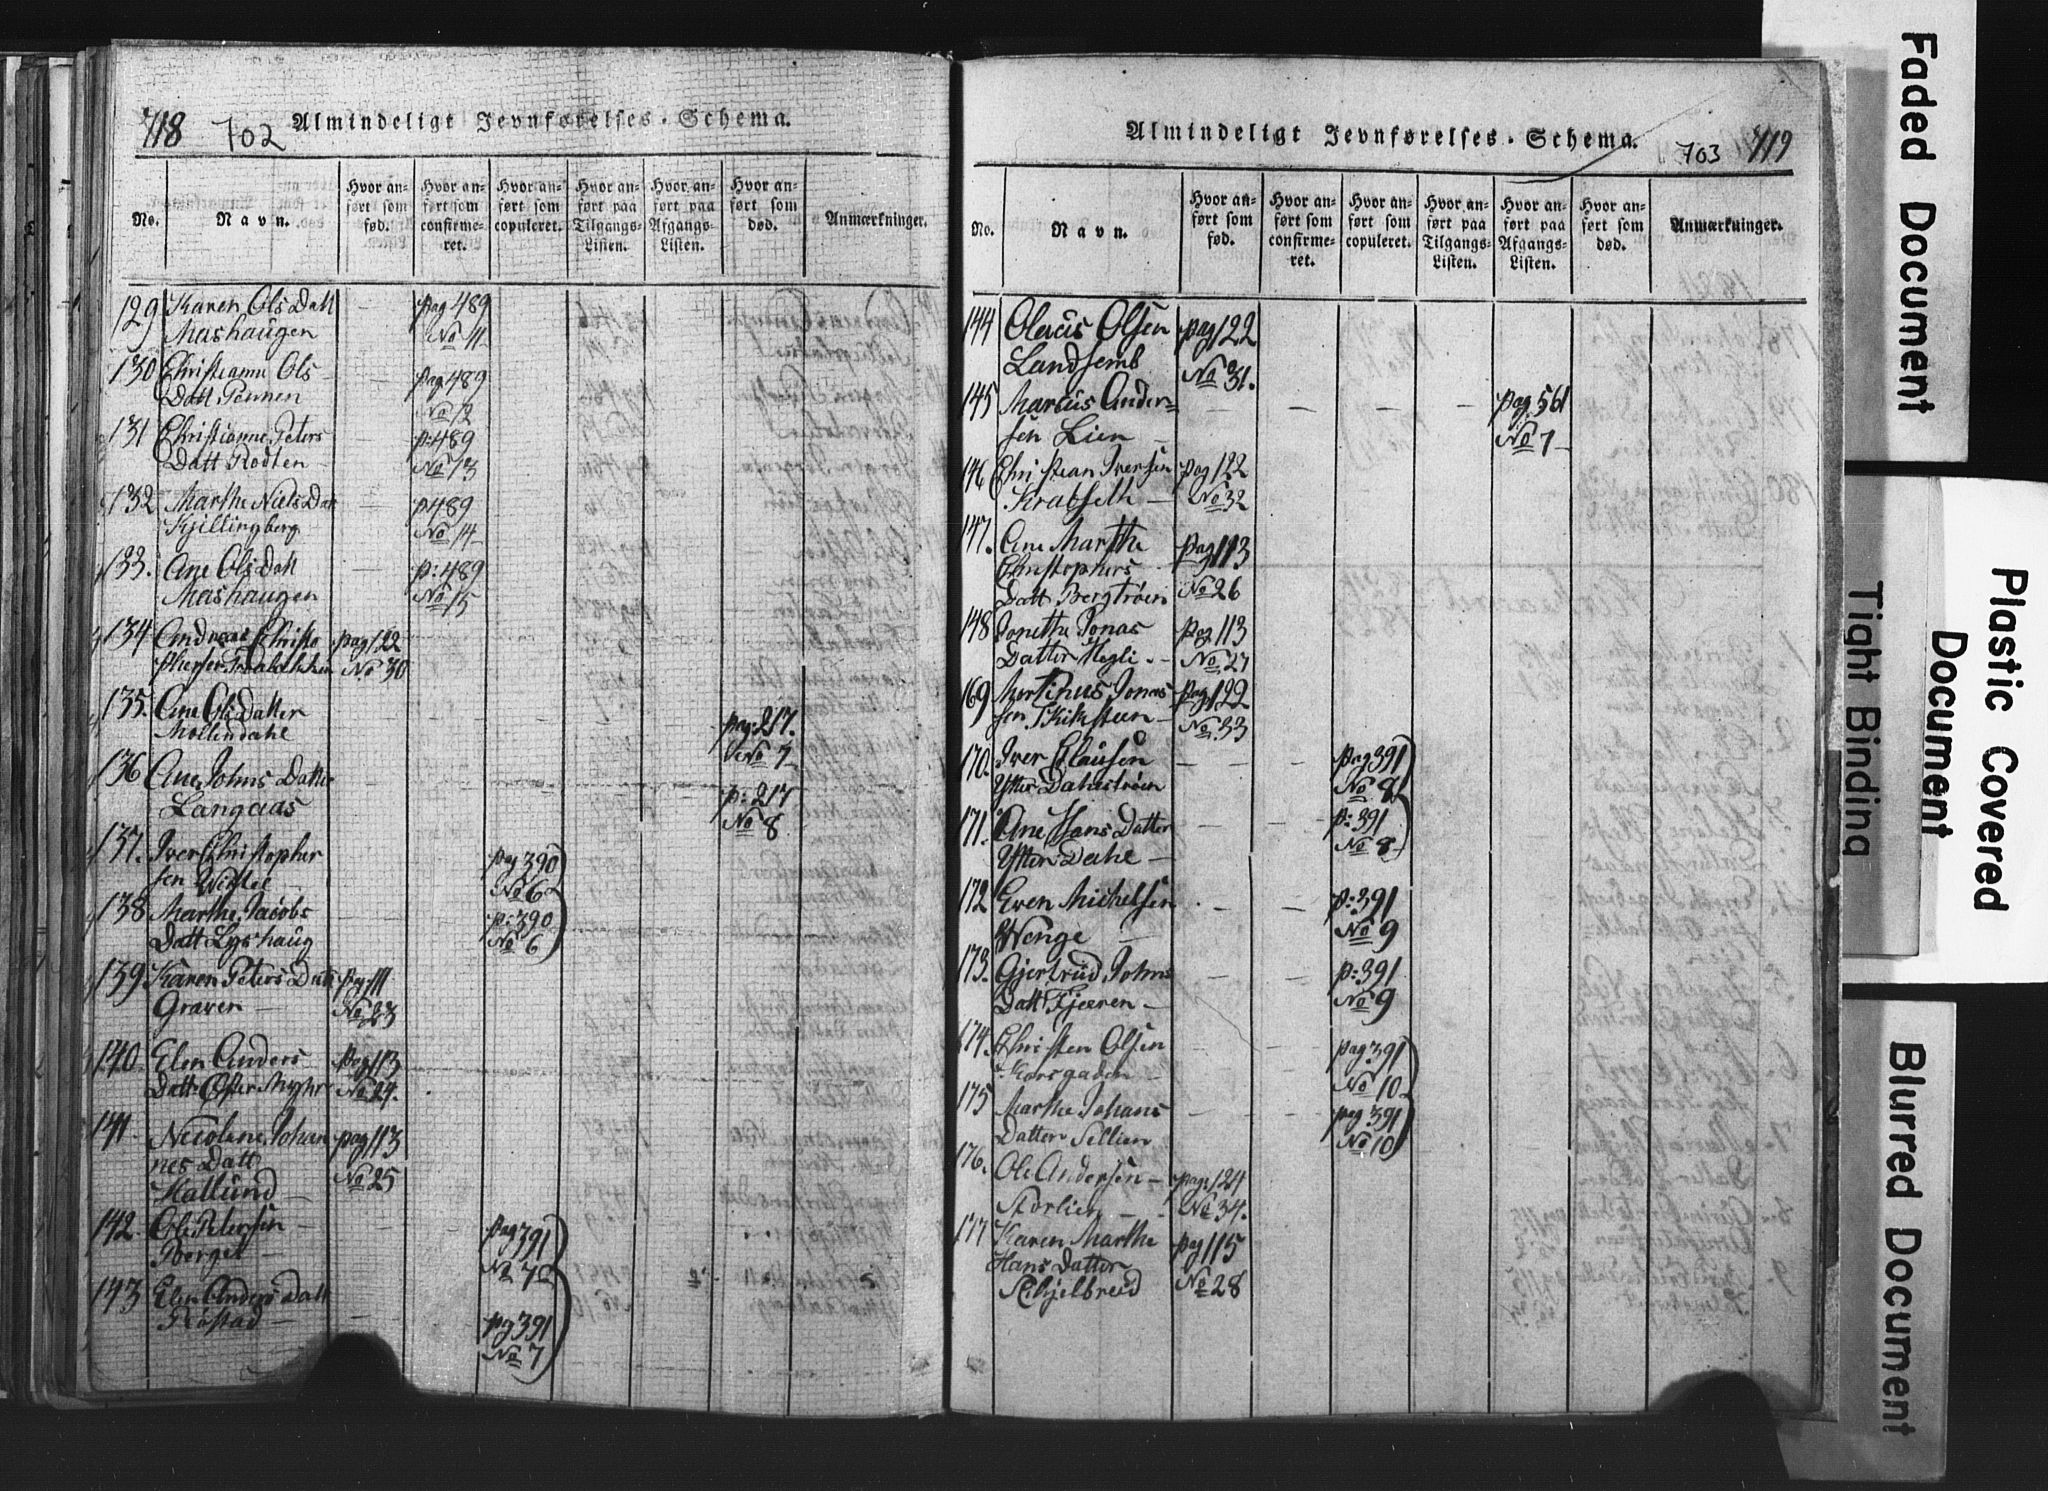 718 702 Almindeligt Jevnførelses-Schema.
No. Navn. Hvor anført som fød. Hvor anført som confirmeret. Hvor anført som copuleret. Hvor anført paa Tilgangs-Listen. Hvor anført paa Afgangs-Listen. Hvor anført som død. Anmærkninger.
129 Karen Ols Datt — pag 489
Mashaugen No 11
130 Christianne Ols — pag 489
Datt Pennen No 12
131 Christianne Peters — p:489
Datt Rodten No 13
132 Marthe Niels Dat — p489
Kjillingberg No 14
133. Ane Ols Datt — p:489
Mashaugen No 15
134 Andreas Christo pag 122
phersen No 30
135. Ane Ols Datter
Mollindahl pag: 217.
No 7
136 Ane Johns Datter
Langaas p: 217
No 8
137. Iver Christopher pag 390
sen No 6
138 Marthe Jacobs p: 390
Datt Lyshaug No 6
139 Karen Peters Datt pag 111
Graven — No 23
140. Elen Anders pag 113
Datt Øster Myhr No 24.
141 Nicoline Johan pag 113
nes Datt No 25
Hallund —
142. Ole Petersen pag 391
Berget — No 7
143 Elen Anders Datt
Röstad — pag 391
No 7
Almindeligt Jevnførelses-Schema. 703 719
No. Navn. Hvor anført som fød. Hvor anført som confirmeret. Hvor anført som copuleret. Hvor anført paa Tilgangs-Listen. Hvor anført paa Afgangs-Listen. Hvor anført som død. Anmærkninger.
144 Olaus Olsen pag 122
Landsemb No 31.
145 Marcus Ander= — — — — pag 561
sen Lien — No 7
146 Christian Iversen pag 122
Krabseth — No 32
147. Ane Marthe pag 113
Christophers No 26
Datt Bergtröen
148 Jonethe Jonas pag 113
Datter Hegli. — No 27
169 Mortinus Jonas pag 122
sen — No 33
170. Iver Clausen — — — pag 391
Ytter Dahlströen No 8
171. Ane Hans Datter — — p: 391
Ytter Dahl — No 8
172 Even Michelsen — — p: 391
Wenge — No 9
173. Gjertrud Johns — — p: 391
Datt Fjæren — No 9
174. Christen Olsen pag 391
Korsgaden — No 10
175 Marthe Johans — — pag 391
Datter Sellien No 10
176. Ole Andersen — pag: 124
Storlien — No 34.
177 Karen Marthe pag 115
Hans Datter No 28
Skjelbreed
Faded Document
Tight Binding
Plastic Covered
Document
Blurred Document